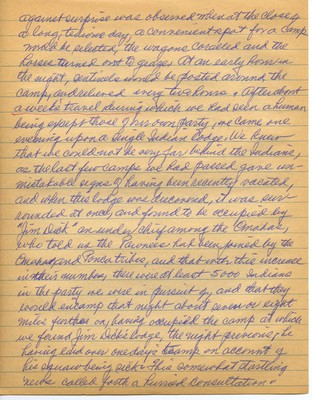 against surprise was observed when at the close of
a long, tiresome day, a convenient spot for a camp
would be selected, the wagons corralled and the
horses turned out to graze. At an early hour in
the night, sentinels would be posted around the
camp, and relieved every two hours. After about
a weeks travel during which we had seen a human
being except those of our own party, we came one
evening upon a single Indian lodge. We knew
that we could not be very far behind the Indians,
as the last few camps we had passed gave un-
mistakable signs of having been recently vacated,
and when this lodge was discovered, it was sur-
rounded at once, and found to be occupied by
"Jim Dick" an under chief among the Omahas,
who told us the Pawnees had been joined by the
Omahas and Ponca tribes, and that with this increase
in their numbers, there were at least 5000 Indians
in the party we were in pursuit of, and that they
would encamp that night about seven or eight
miles further on, having occupied the camp at which
we found Jim Dick's lodge, the night previous, he
having laid over one day's camp on account of
his squaw being sick. This somewhat startling
news called forth a hurried consultation.